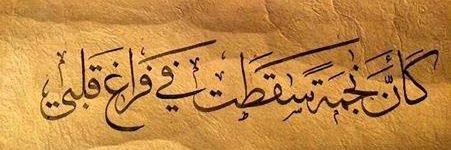 كأنَّ نجمةً سَقَطَت في فَراغِ قَلبي